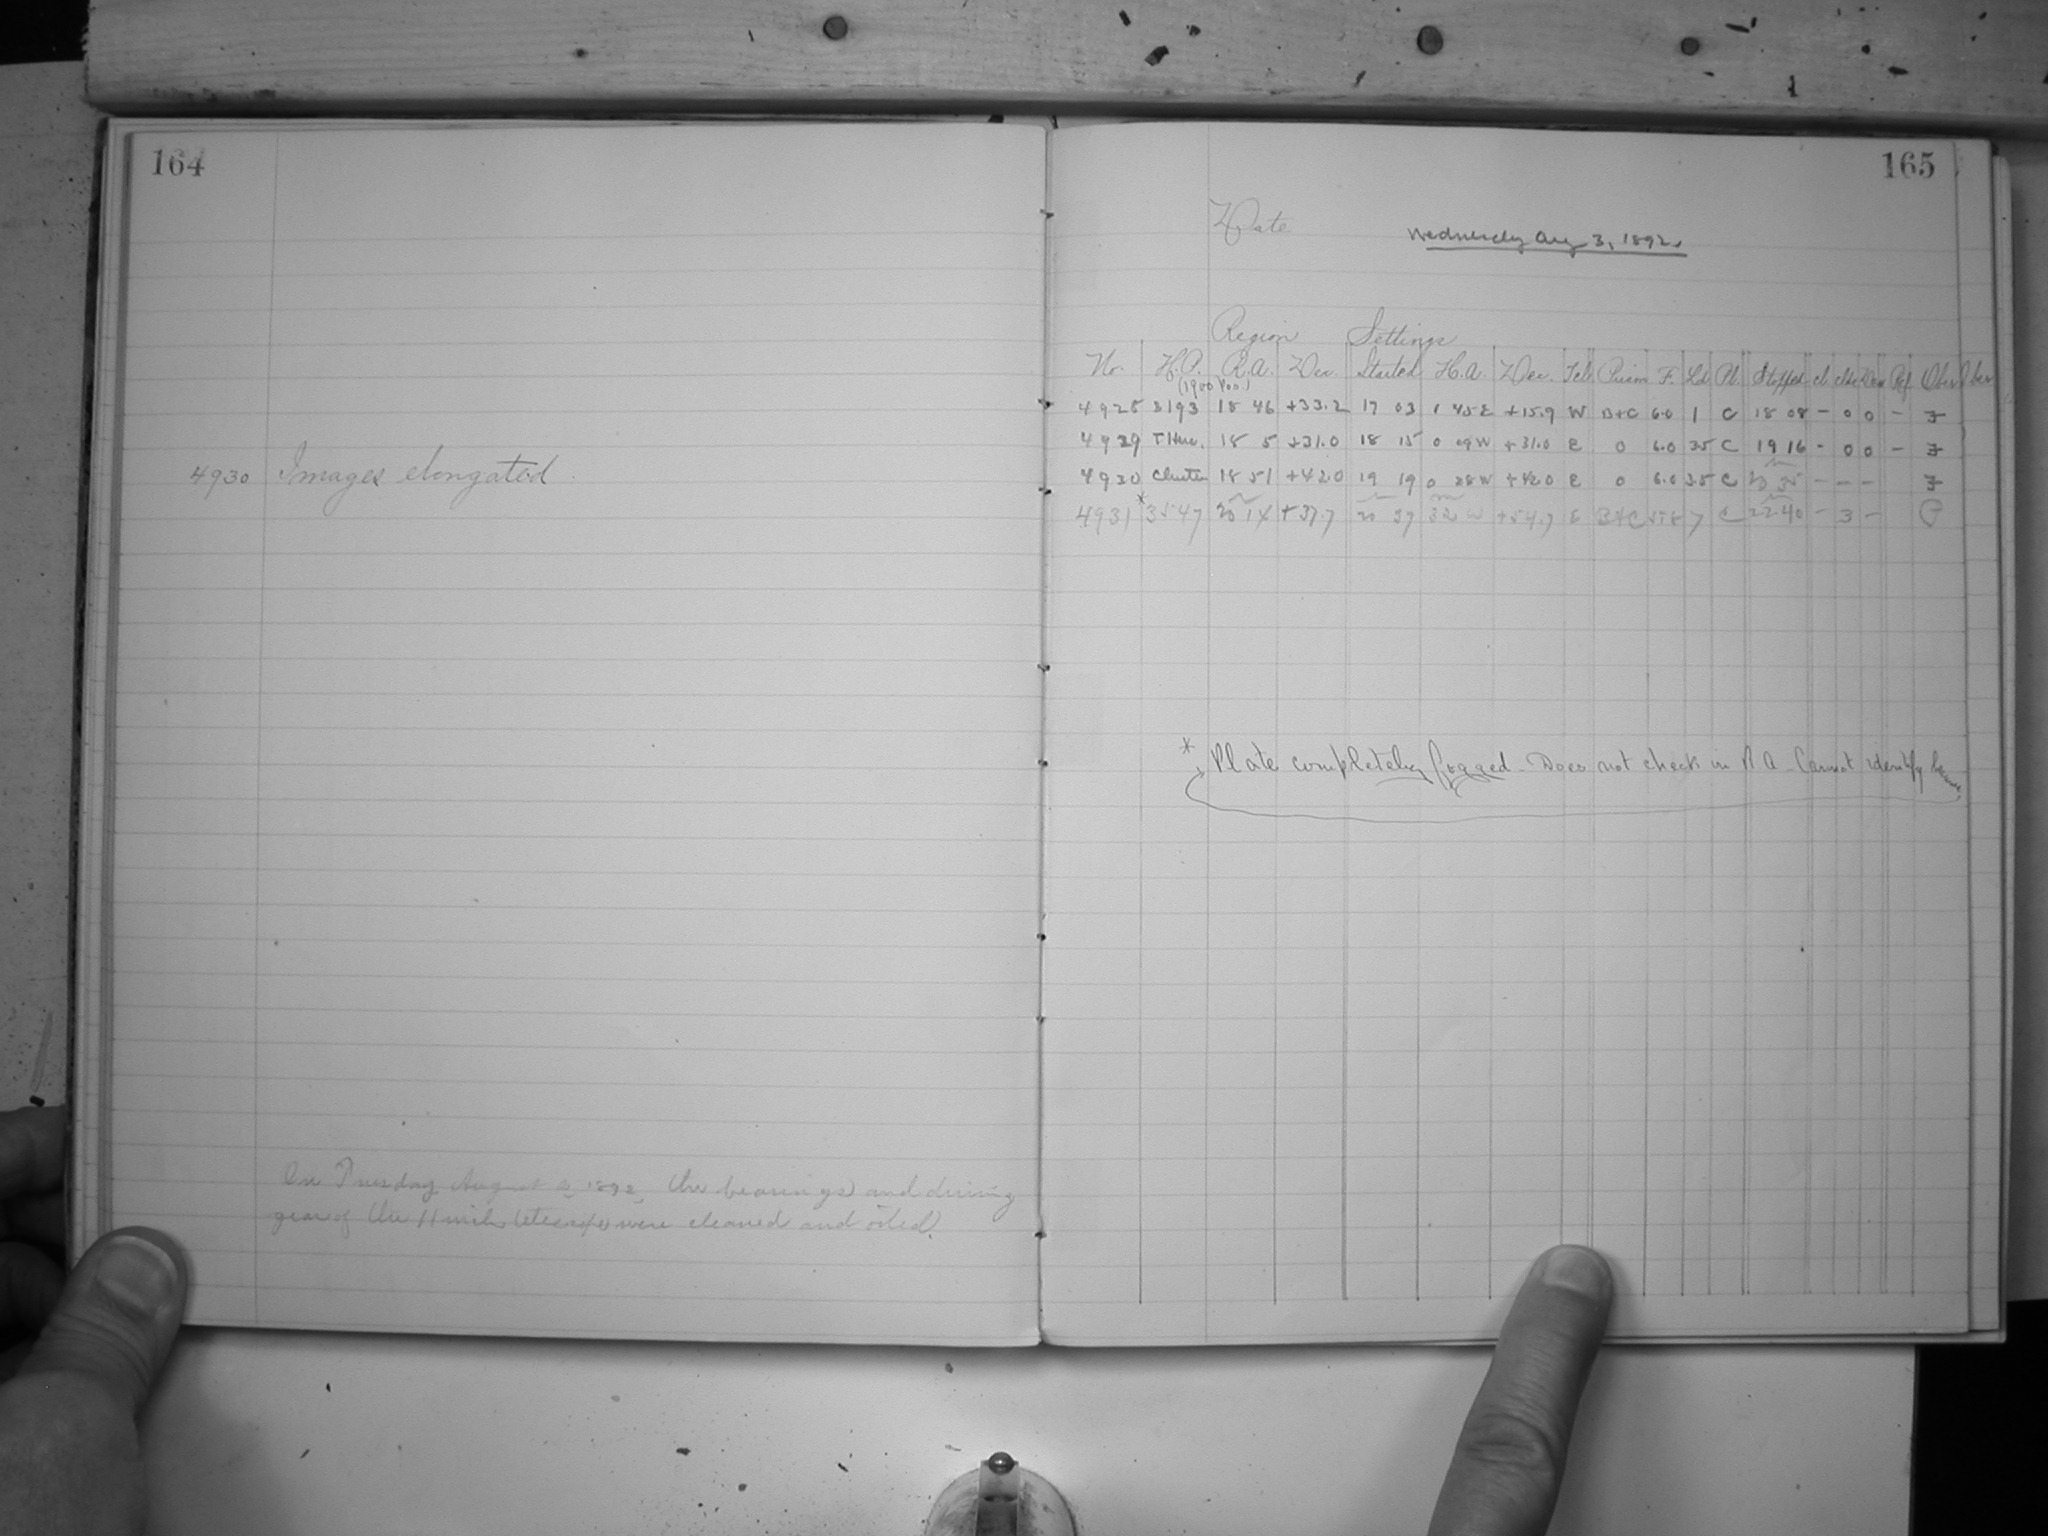 164
4930 Images elongated.
On Tuesday August 2, 1892, the bearings and driving
gear of the 11 inch telescope were cleaned and oiled.
165
Date Wednesday Aug 3, 1892.
Region Settings
No. H.P. R.A. Dec. Started H.A. Dec. Tel Prism F. Ld Pl. Stopped cl. Ref. Obser
(1900 Pos.)
4928 3193 18 46 +33.2 17 03 1 45 E +15.9 W B+C 6.0 1 C 18 08 - 0 0 - F
4929 T Her. 18 5 +31.0 18 15 0 09 W +31.0 E 0 6.0 35 C 19 16 - 0 0 - F
4930 Cluster 18 51 +42.0 19 19 0 28 W +42.0 E 0 6.0 35 C 20 35 - - - F
4931 * 3547 20 14 +37.7 20 37 32 W +54.7 E B+C 7 C 22 40 - 3 -
* Plate completely fogged - Does not check in RA - Cannot identify